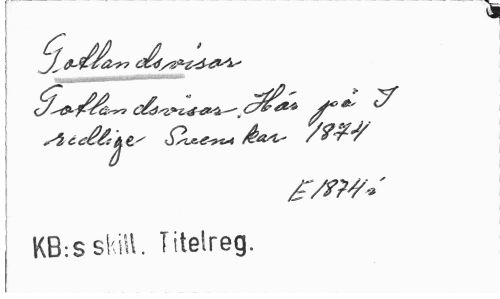 Gotlandsvisor
Gotlandsvisor. Här på I
redlige Svenskar 1874
E 1874 ä
KB:s skill. Titelreg.